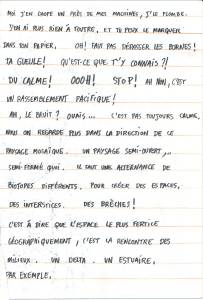 MOI J'EN CHOPE UN PRÈS DE MES MACHINES, J'LE PLOMBE.
J'EN AI PLUS RIEN À FOUTRE, ET TU PEUX LE MARQUER
DANS SON PAPIER. OH! FAUT PAS DÉPASSER LES BORNES!
TA GUEULE! QU'EST-CE QUE T'Y CONNAIS?!
DU CALME! OOOH! STOP! AH NON, C'EST
UN RASSEMBLEMENT PACIFIQUE!
AH, LE BRUIT? OUAIS... C'EST PAS TOUJOURS CALME,
NOUS ON REGARDE PLUS DANS LA DIRECTION DE CE
PAYSAGE MOSAÏQUE. UN PAYSAGE SEMI-OUVERT,...
SEMI-FERMÉ QUOI. IL FAUT UNE ALTERNANCE DE
BIOTOPES DIFFÉRENTS. POUR CRÉER DES ESPACES,
DES INTERSTICES. DES BRÈCHES!
C'EST À DIRE QUE L'ESPACE LE PLUS FERTILE
GÉOGRAPHIQUEMENT, C'EST LA RENCONTRE DES
MILIEUX. UN DELTA. UN ESTUAIRE,
PAR EXEMPLE.